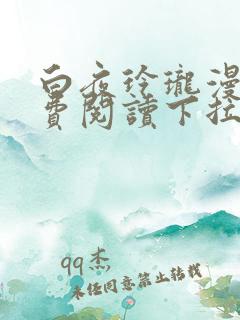 白夜玲瓏漫
費閱讀下拉
qq杰
未经同意禁止转载